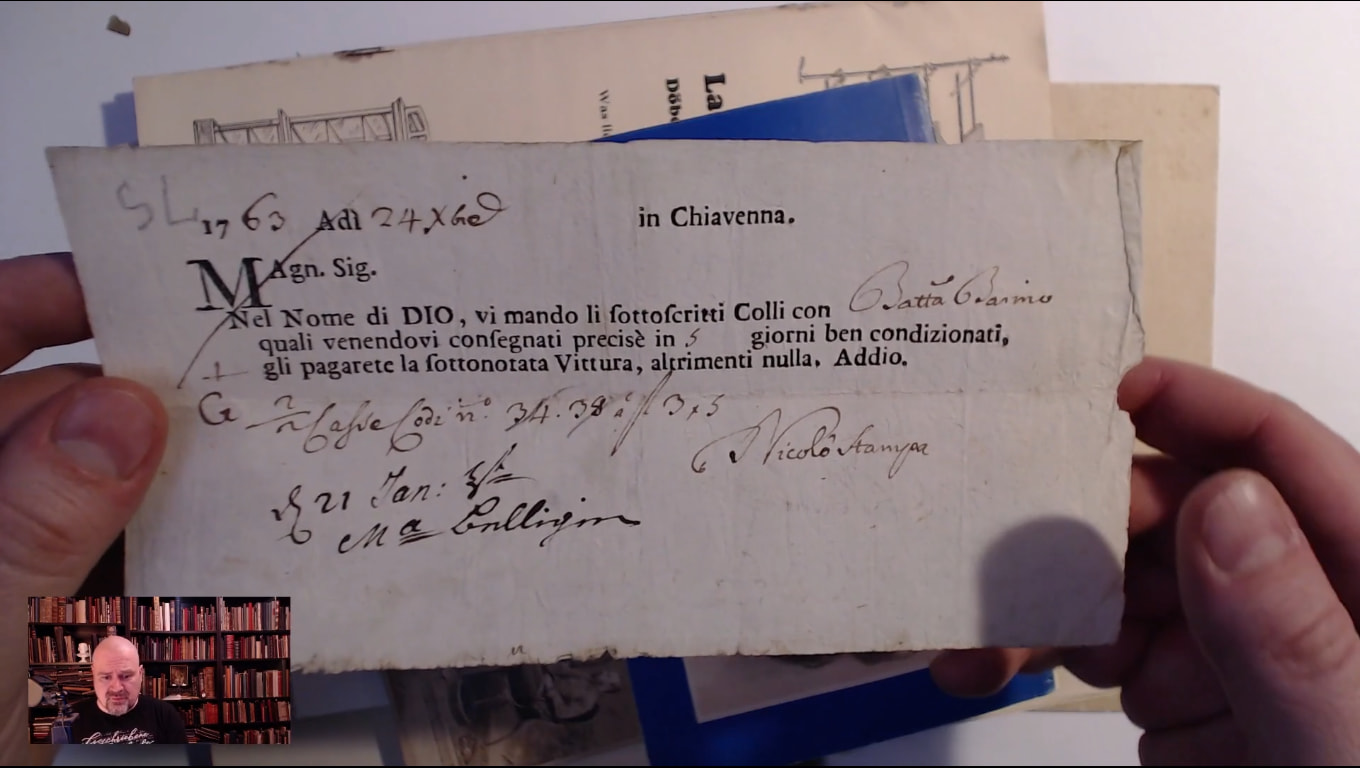 SL
1763 Adì 24 Xbre in Chiavenna.
MAgn. Sig.
Nel Nome di DIO, vi mando li ſottoſcritti Colli con Batta
quali venendovi conſegnati precisè in 5 giorni ben condizionati,
gli pagarete la ſottonotata Vittura, altrimenti nulla. Addio.
G 2/2 Casse n.° 34. 38
Nicolò Stampa
21 Jan:
La
Döbe
Was